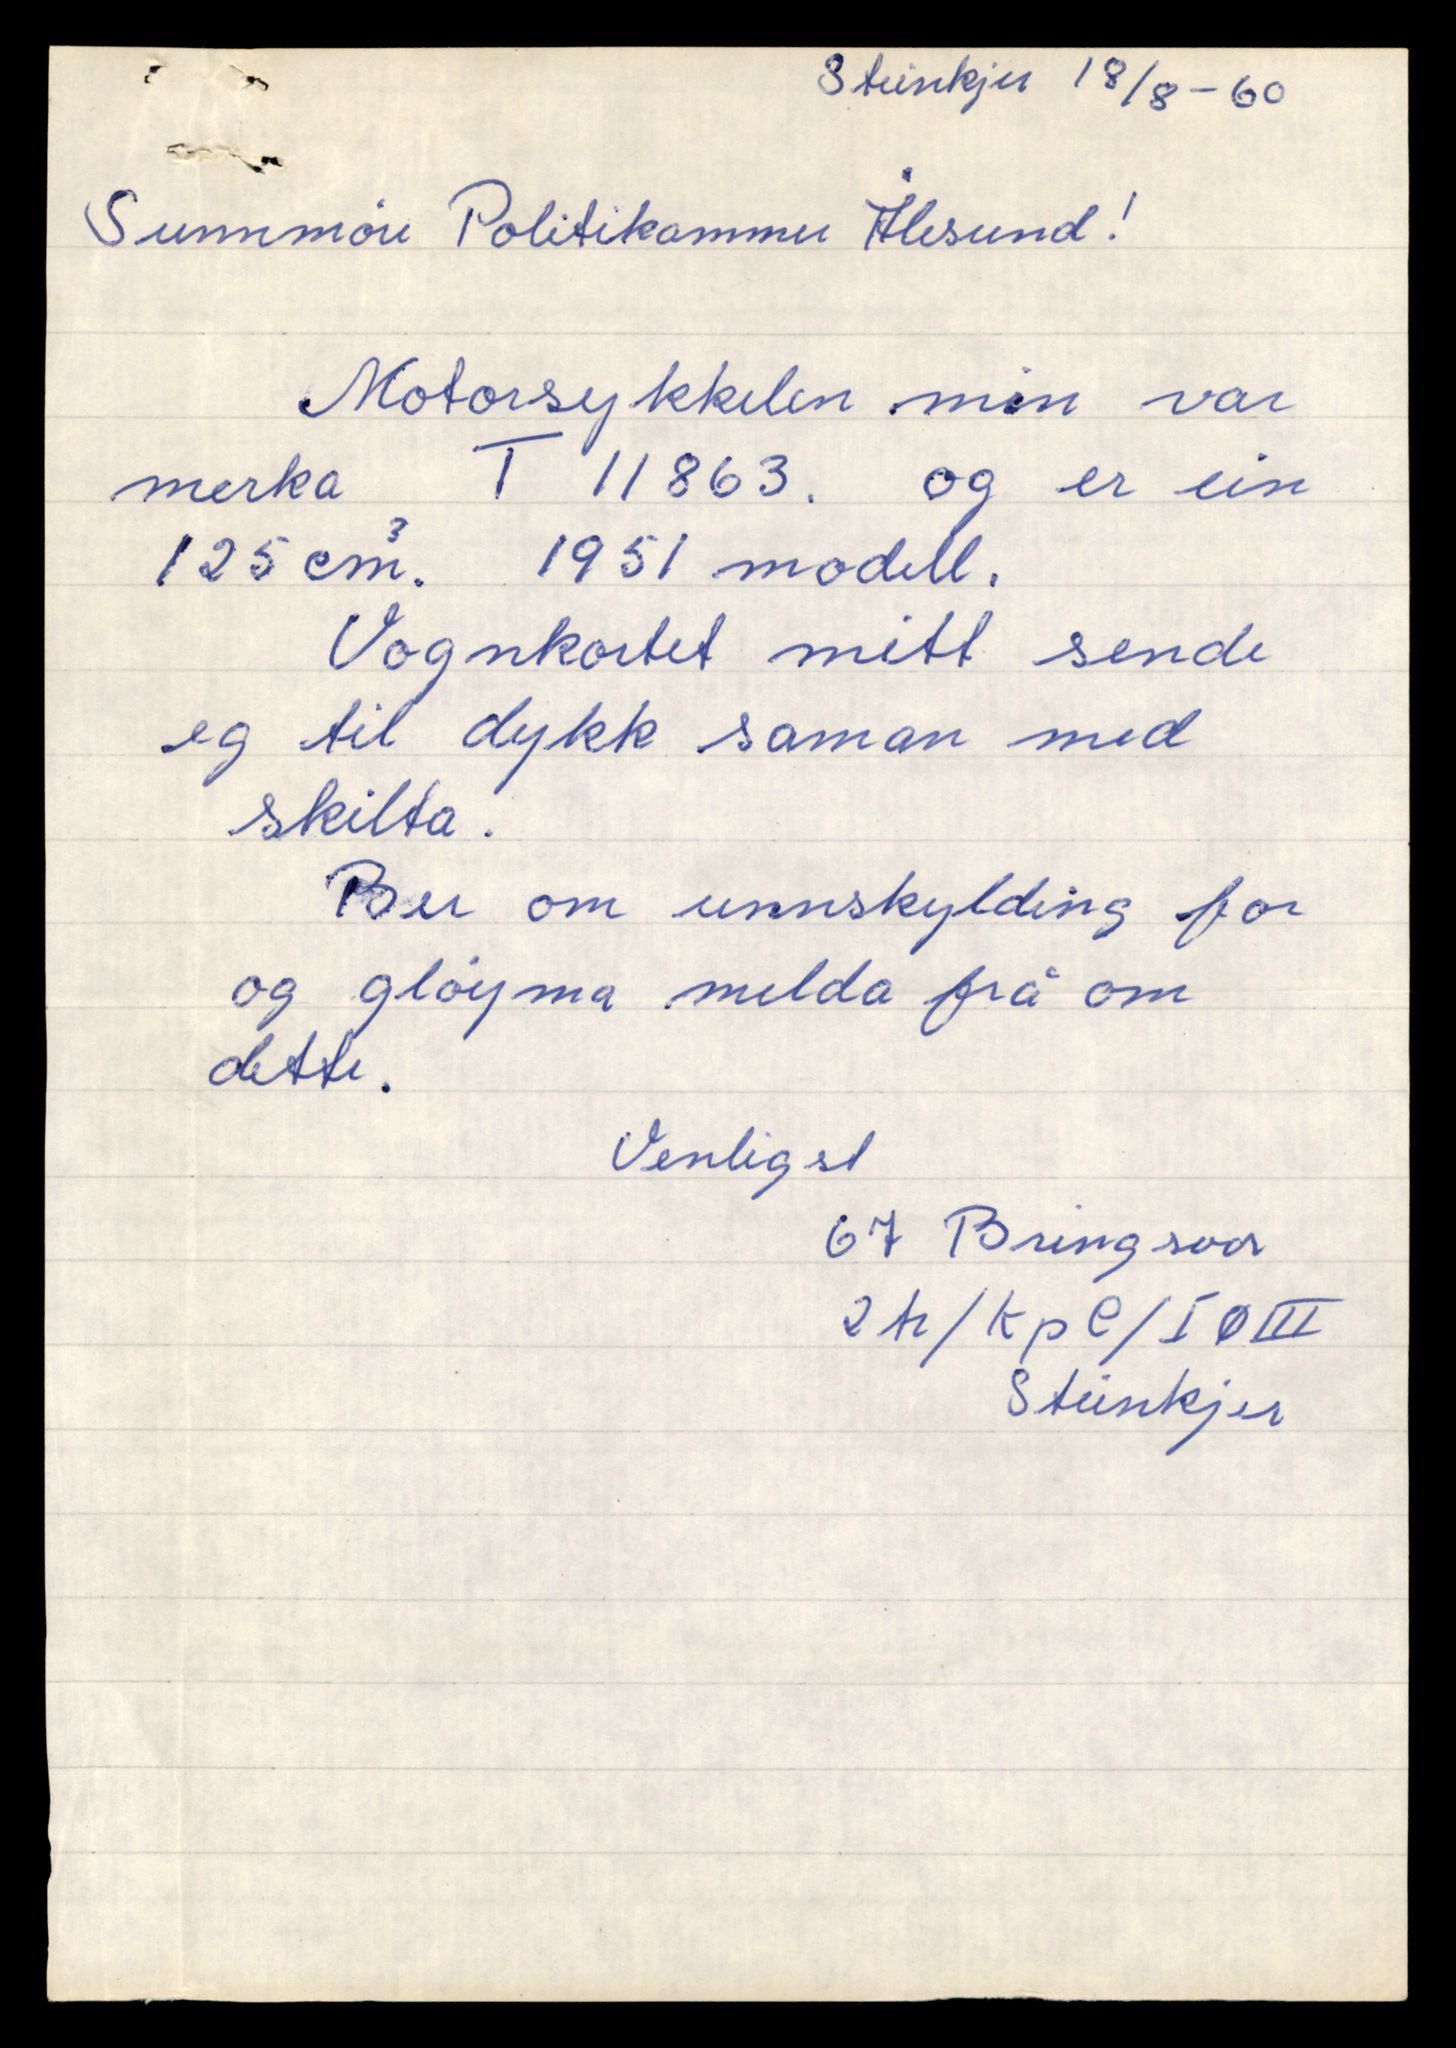 Steinkjer 18/8-60
Sunnmöre Politikammer Ålesund!
Motorsykkelen min var
merka T 11863. og er ein
125 cm³. 1951 modell.
Vognkortet mitt sende
eg til dykk saman med
skilta.
Ber om unnskylding for
og glöyma melda frå om
dette.
Venligst
67 Bringsvor
2 tr/Kp C/I Ø III
Steinkjer